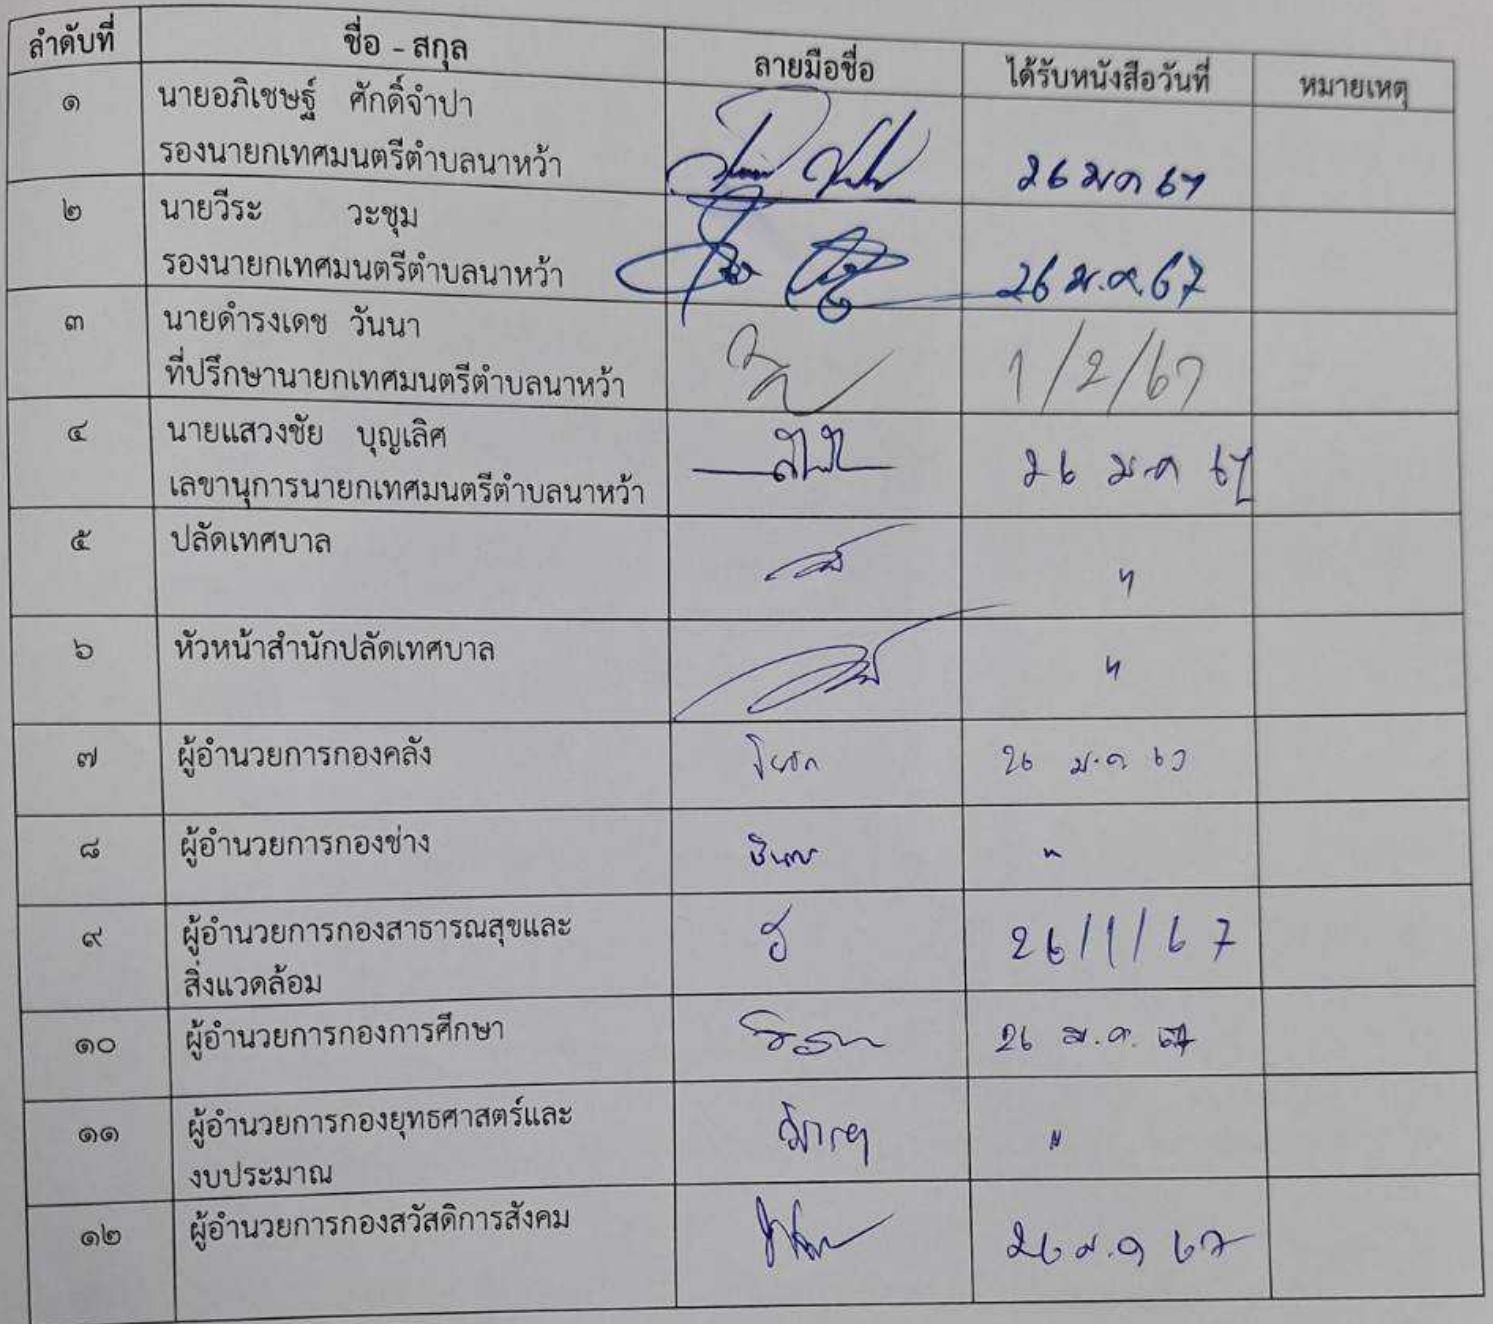 ลำดับที่ ชื่อ - สกุล ลายมือชื่อ ได้รับหนังสือวันที่ หมายเหตุ
๑ นายอภิเชษฐ์ ศักดิ์จำปา
รองนายกเทศมนตรีตำบลนาหว้า 26 มค 67
๒ นายวีระ วะชุม
รองนายกเทศมนตรีตำบลนาหว้า 26 ม.ค. 67
๓ นายดำรงเดช วันนา
ที่ปรึกษานายกเทศมนตรีตำบลนาหว้า 1/2/67
๔ นายแสวงชัย บุญเลิศ
เลขานุการนายกเทศมนตรีตำบลนาหว้า 26 ม.ค 67
๕ ปลัดเทศบาล "
๖ หัวหน้าสำนักปลัดเทศบาล "
๗ ผู้อำนวยการกองคลัง 26 ม.ค 67
๘ ผู้อำนวยการกองช่าง "
๙ ผู้อำนวยการกองสาธารณสุขและ
สิ่งแวดล้อม 26/1/67
๑๐ ผู้อำนวยการกองการศึกษา 26 ม.ค. 67
๑๑ ผู้อำนวยการกองยุทธศาสตร์และ
งบประมาณ "
๑๒ ผู้อำนวยการกองสวัสดิการสังคม 26 ม.ค 67